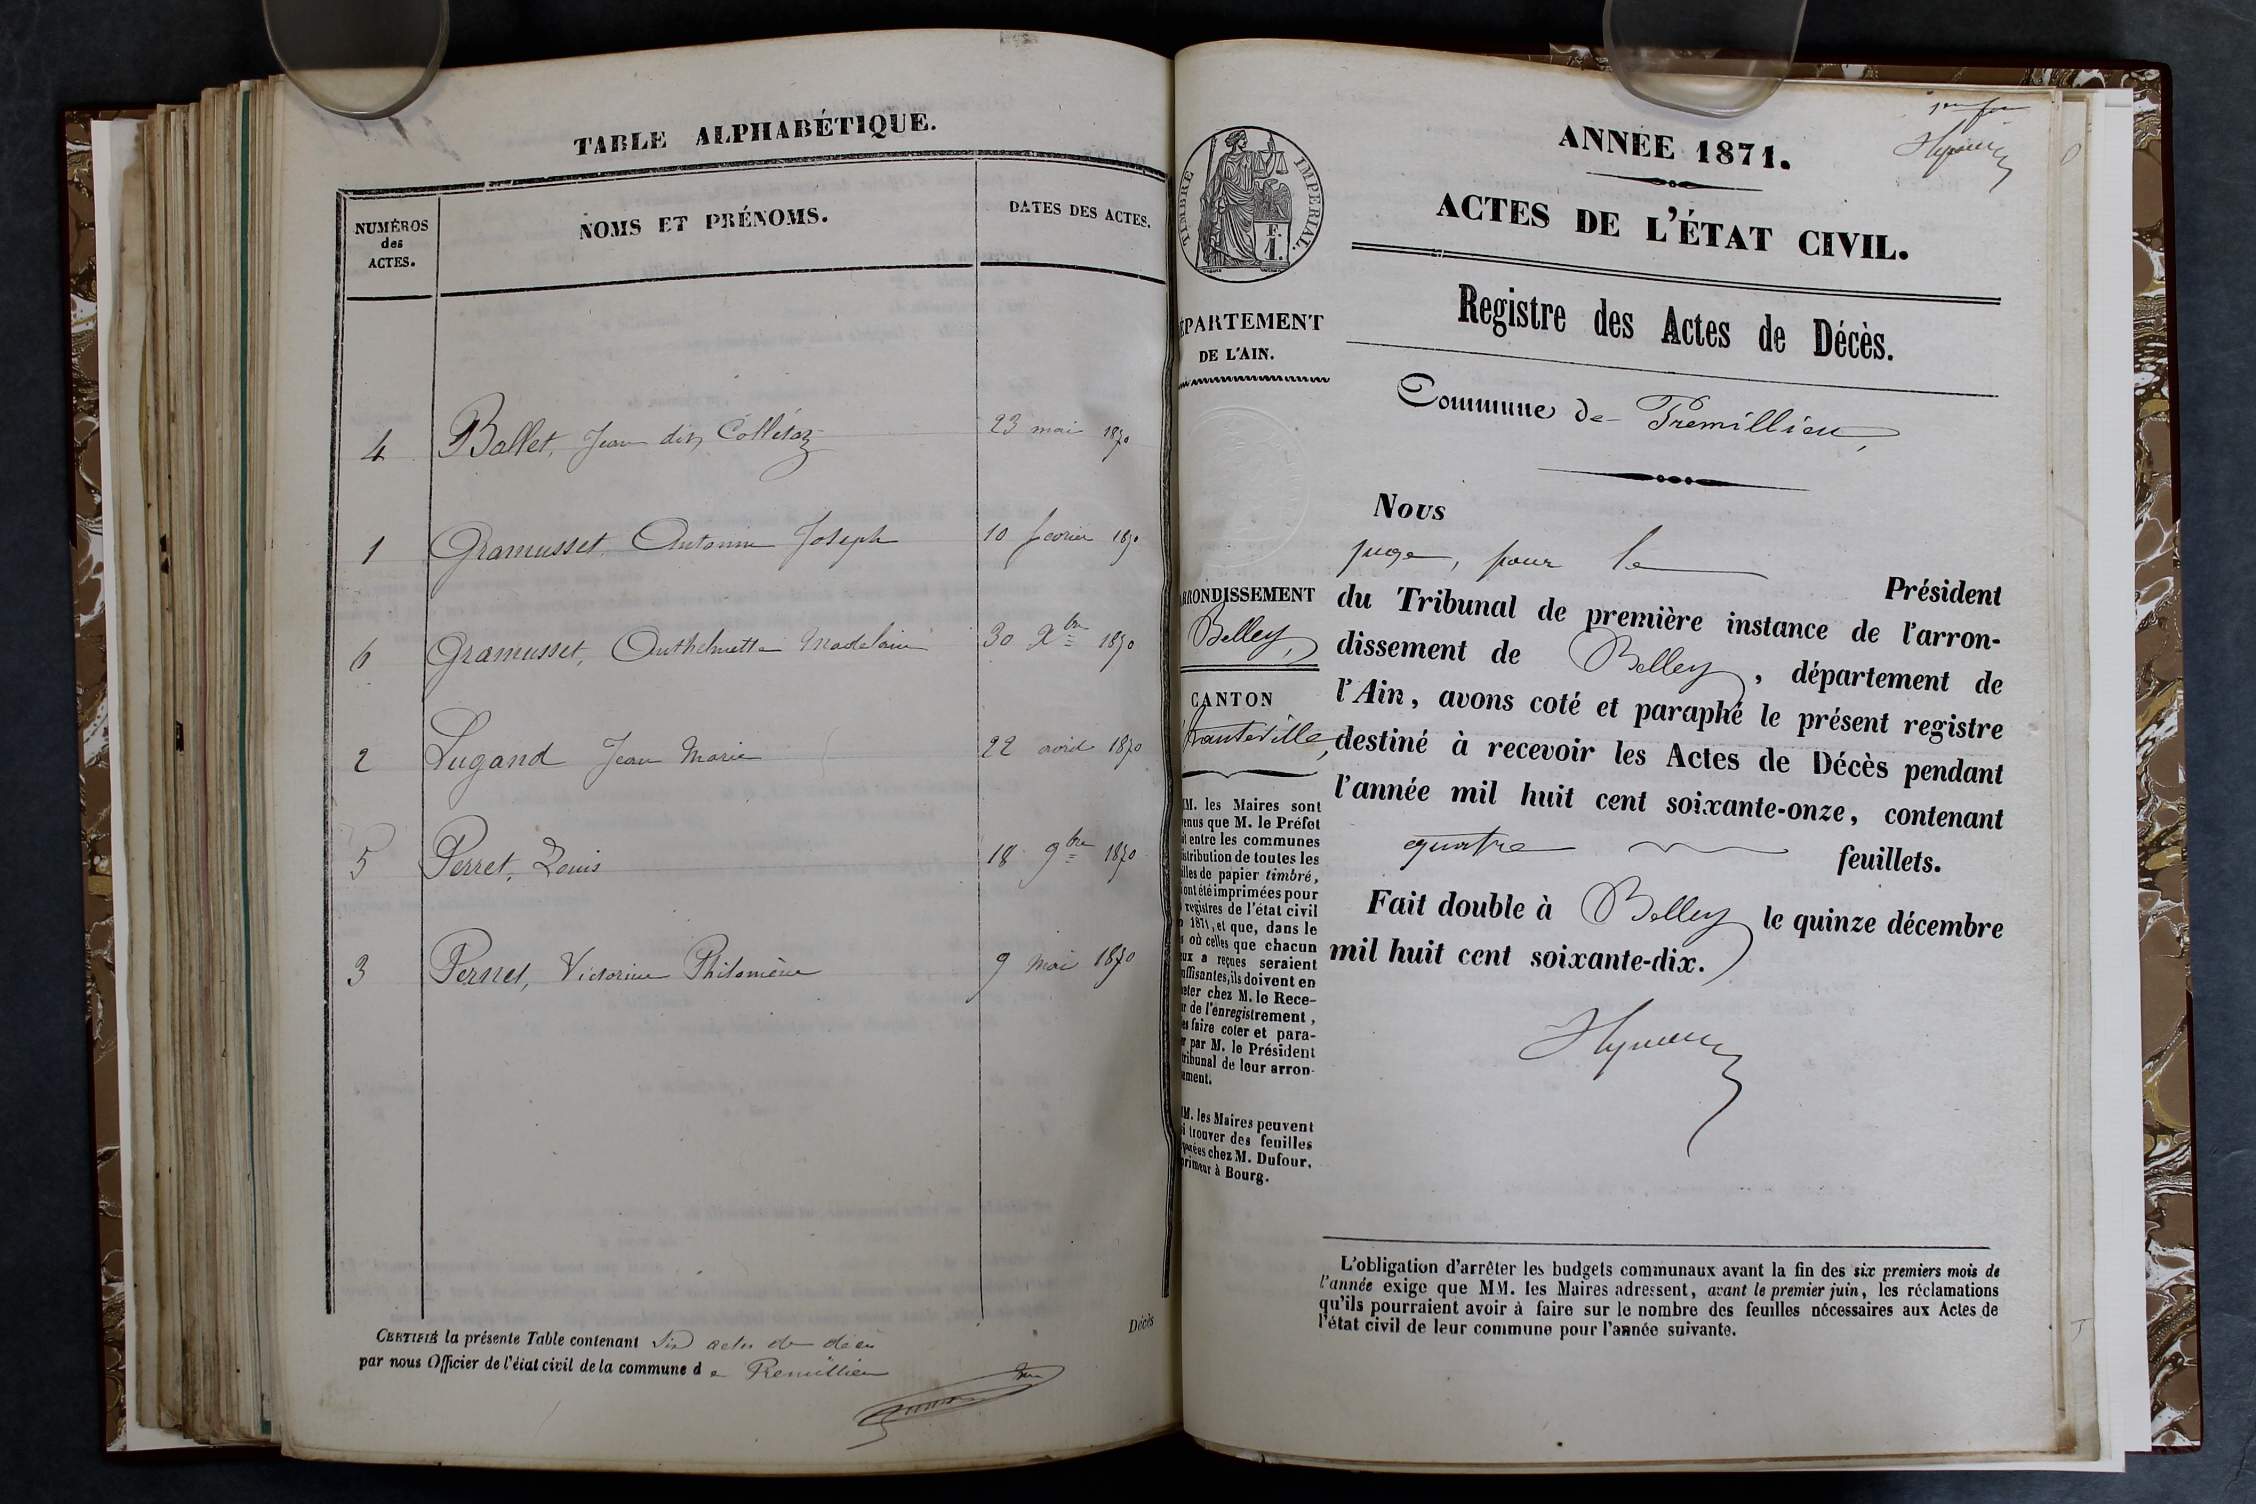 TABLE ALPHABÉTIQUE.
NUMÉROS
des
ACTES.
NOMS ET PRÉNOMS.
DATES DES ACTES.
4 Ballet, Jean dit Collétaz 23 mai 1870
1 Gramusset Antoine Joseph 10 fevrier 1870
6 Gramusset, Anthelmette Madelaine 30 Xbre 1870
2 Lugand Jean Marie 22 avril 1870
5 Perret, Louis 18 9bre 1870
3 Pernet, Victorine Philomène 9 mai 1870
Décès
CERTIFIÉ la présente Table contenant six actes de décès
par nous Officier de l'état civil de la commune de Premillieu
ANNÉE 1871.
ACTES DE L'ÉTAT CIVIL.
TIMBRE IMPERIAL.
F.
1.
Registre des Actes de Décès.
ÉPARTEMENT
DE L'AIN.
Commune de Premillieu,
Nous
juge, pour le
Président
du Tribunal de première instance de l'arron-
dissement de Belley, département de
l'Ain, avons coté et paraphé le présent registre
destiné à recevoir les Actes de Décès pendant
l'année mil huit cent soixante-onze, contenant
quatre feuillets.
Fait double à Belley le quinze décembre
mil huit cent soixante-dix.
RRONDISSEMENT
Belley,
CANTON
hauteville,
M. les Maires sont
enus que M. le Préfet
it entre les communes
istribution de toutes les
illes de papier timbré,
ont été imprimées pour
registres de l'état civil
1871, et que, dans le
s où celles que chacun
ux a reçues seraient
uffisantes, ils doivent en
eter chez M. le Rece-
r de l'enregistrement,
es faire coter et para-
r par M. le Président
tribunal de leur arron-
ement.
M. les Maires peuvent
i trouver des feuilles
parées chez M. Dufour,
primeur à Bourg.
L'obligation d'arrêter les budgets communaux avant la fin des six premiers mois de
l'année exige que MM. les Maires adressent, avant le premier juin, les réclamations
qu'ils pourraient avoir à faire sur le nombre des feuilles nécessaires aux Actes de
l'état civil de leur commune pour l'année suivante.